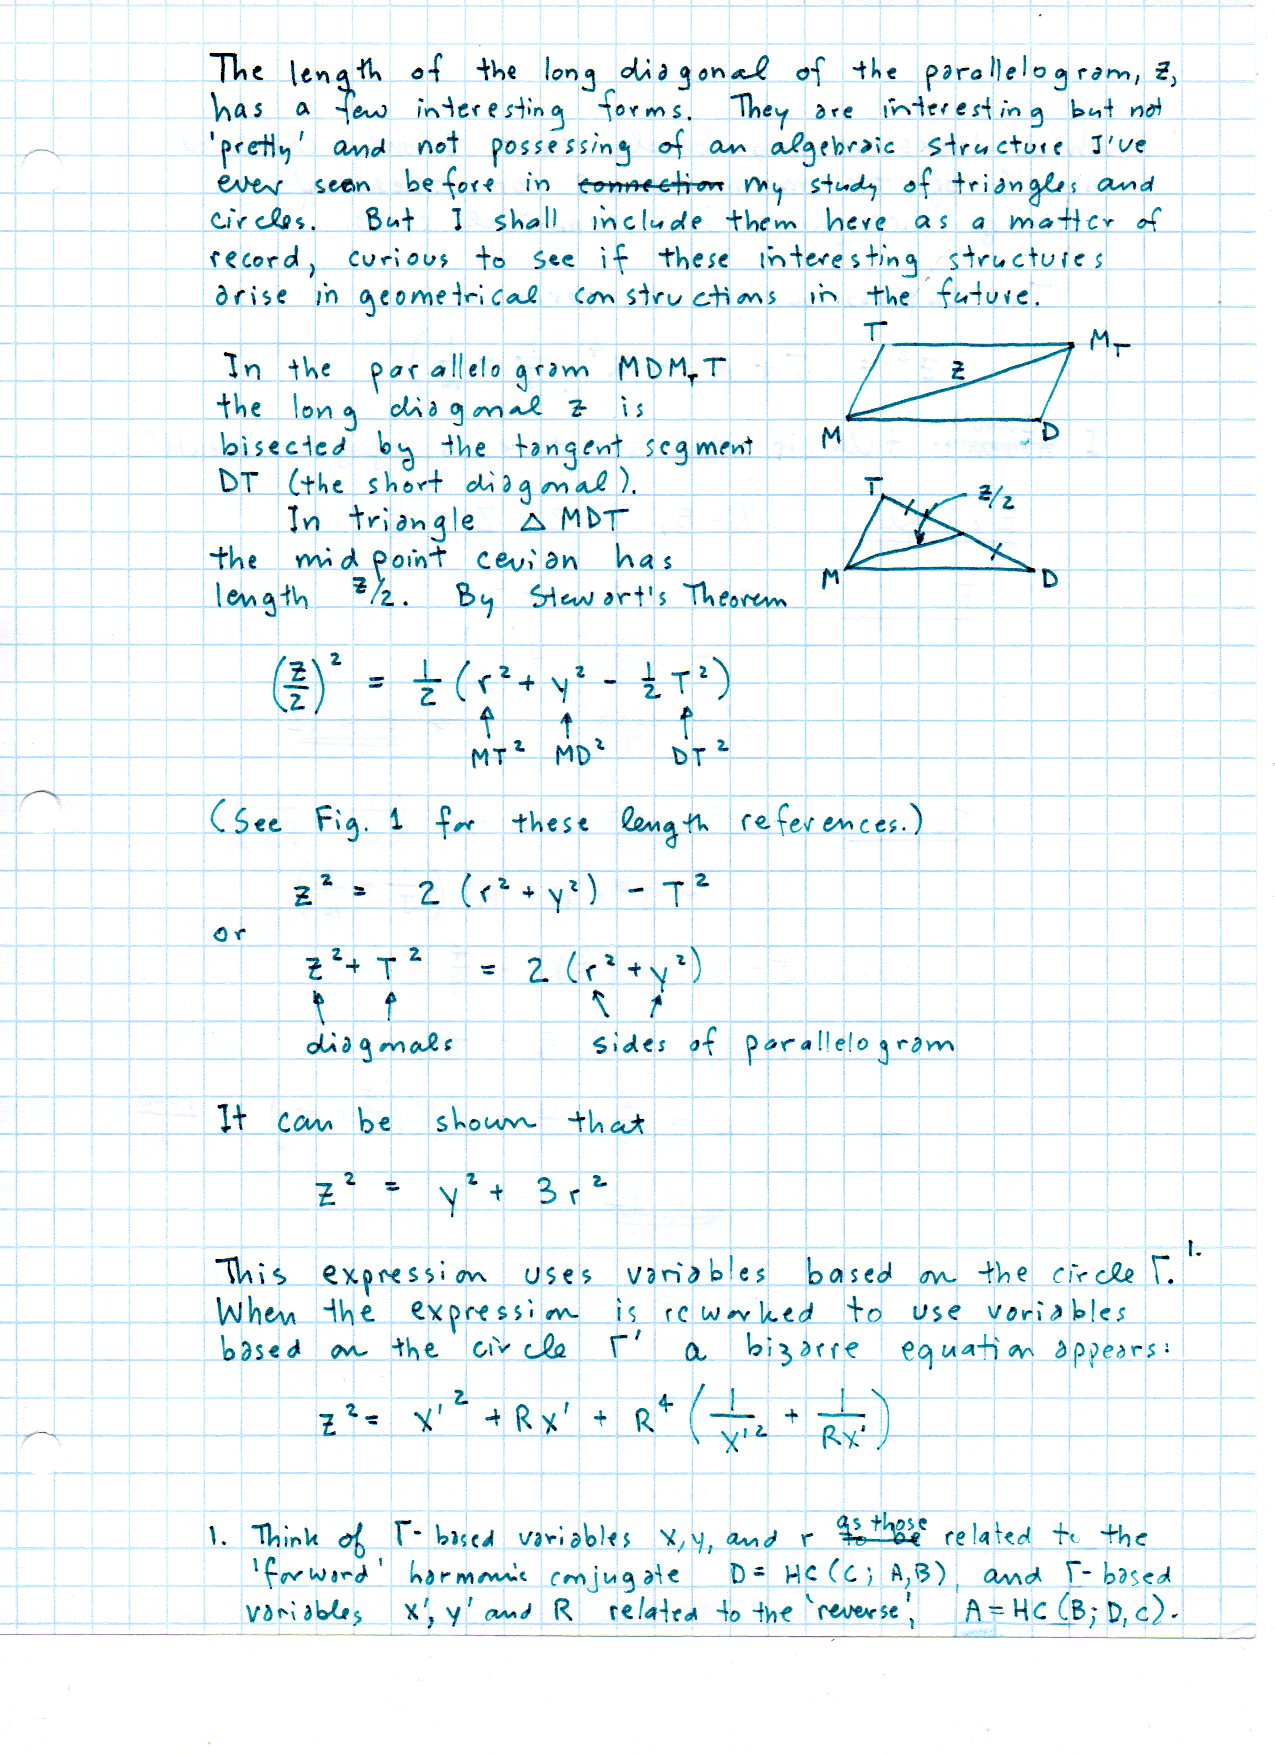 The length of the long diagonal of the parallelogram, z,
has a few interesting forms. They are interesting but not
'pretty' and not possessing of an algebraic structure I've
ever seen before in connection my study of triangles and
circles. But I shall include them here as a matter of
record, curious to see if these interesting structures
arise in geometrical constructions in the future.
T
M_T
z
M
D
In the parallelogram MDM_TT
the long diagonal z is
bisected by the tangent segment
DT (the short diagonal).
In triangle △ MDT
the midpoint cevian has
length z/2. By Stewart's Theorem
T
z/2
M
D
(z/2)² = 1/2 (r² + y² - 1/2 T²)
MT² MD² DT²
(See Fig. 1 for these length references.)
z² = 2 (r² + y²) - T²
or
z² + T² = 2 (r² + y²)
diagonals sides of parallelogram
It can be shown that
z² = y² + 3r²
This expression uses variables based on the circle Γ.¹·
When the expression is reworked to use variables
based on the circle Γ' a bizarre equation appears:
z² = x'² + Rx' + R⁴ (1/x'² + 1/Rx')
1. Think of Γ-based variables x, y, and r to be as those related to the
'forward' harmonic conjugate D = HC (C; A,B), and Γ-based
variables x', y' and R related to the 'reverse', A = HC (B; D, C).